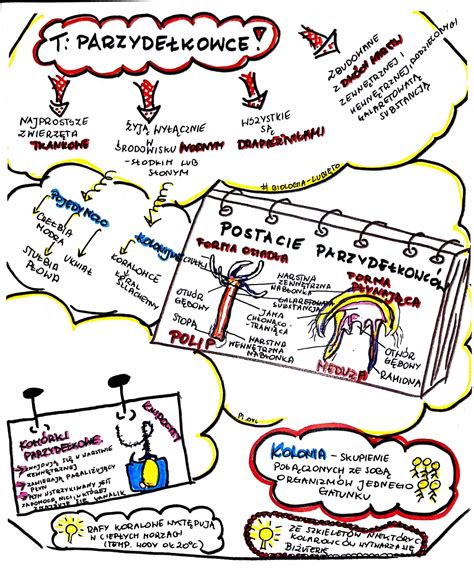 T: PARZYDEŁKOWCE!
NAJPROSTSZE
ZWIERZĘTA
TKANKOWE
ŻYJĄ WYŁĄCZNIE
W
ŚRODOWISKU WODNYM
- SŁODKIM LUB
SŁONYM
WSZYSTKIE
SĄ
DRAPIEŻNIKAMI
ZBUDOWANE
Z DWÓCH WARSTW
ZEWNĘTRZNEJ I
WEWNĘTRZNEJ,
GALARETOWATĄ
SUBSTANCJĄ
# BIOLOGIA-LUBIĘTO
POJEDYNCZO
STUŁBIA
PŁOWA
UKWIAŁ
KORALOWCE
KORAL
SZLACHETNY
POSTACIE PARZYDEŁKOWCÓW
FORMA OSIADŁA
CZUŁKI
OTWÓR
GĘBOWY
STOPA
POLIP
WARSTWA
ZEWNĘTRZNA
NABŁONKA
GALARETOWATA
SUBSTANCJA
JAMA
CHŁONĄCO-
TRAWIĄCA
WARSTWA
WEWNĘTRZNA
NABŁONKA
FORMA
PŁYWAJĄCA
MEDUZA
OTWÓR
GĘBOWY
RAMIONA
KOMÓRKI
PARZYDEŁKOWE
ZNAJDUJĄ SIĘ W WARSTWIE
ZEWNĘTRZNEJ
ZAWIERAJĄ PARALIŻUJĄCY
PŁYN
PŁYN WSTRZYKIWANY JEST
KOLONIA - SKUPIENIE
POŁĄCZONYCH ZE SOBĄ
ORGANIZMÓW JEDNEGO
GATUNKU
RAFY KORALOWE WYSTĘPUJĄ
W CIEPŁYCH MORZACH
(TEMP. WODY OK 20°C)
ZE SZKIELETÓW NIEKTÓRYCH
KORALOWCÓW WYTWARZA SIĘ
BIŻUTERIĘ